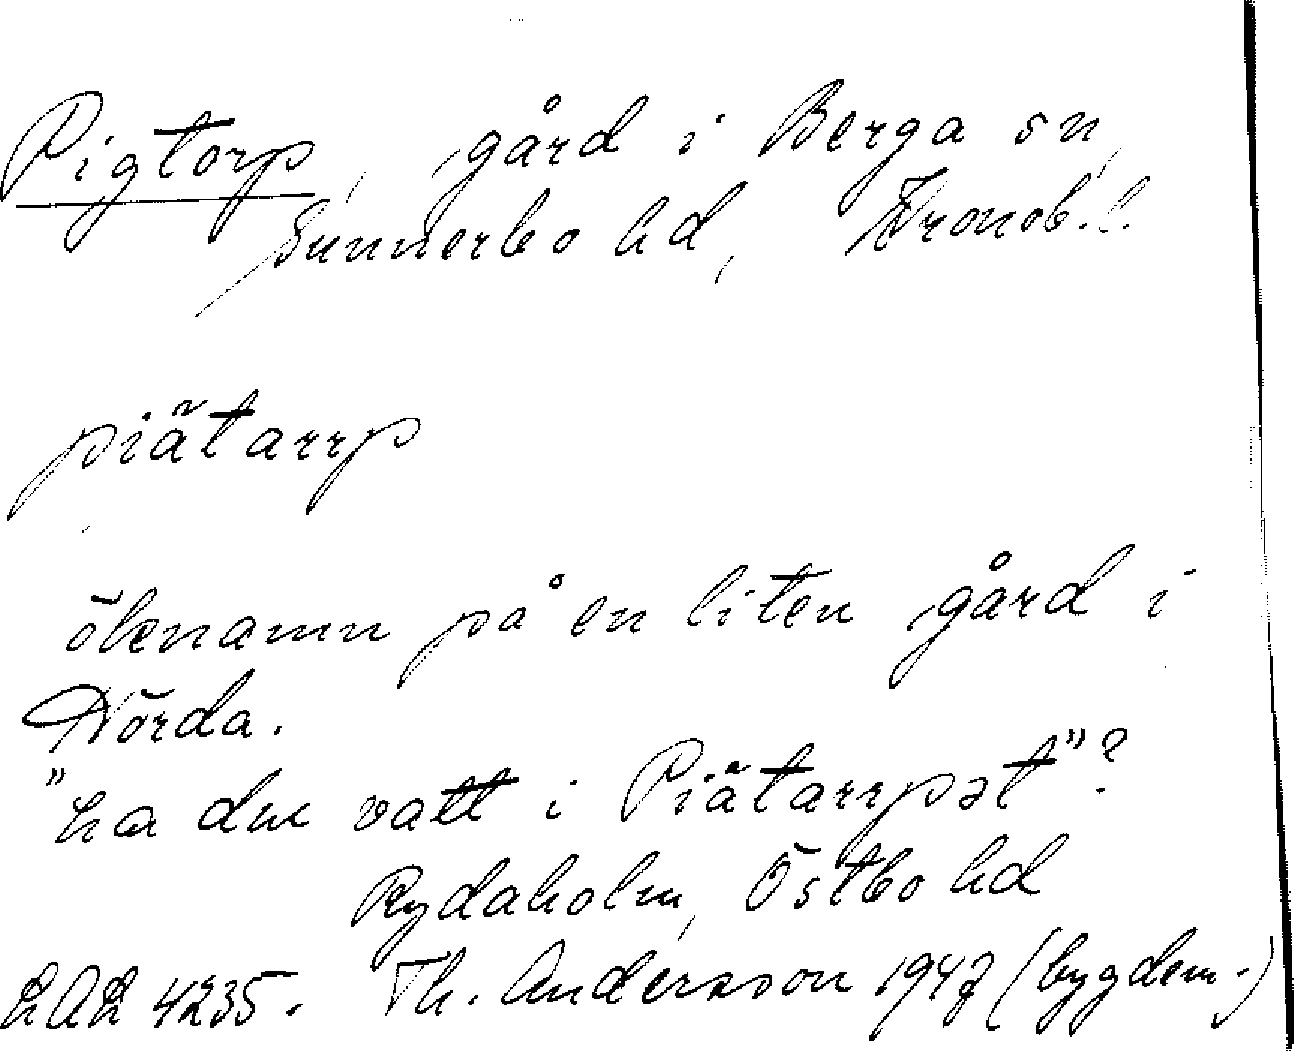 Pigtorp, gård i Berga sn,
Sunnerbo hd, Kronob. l.
piätarrp
öknamn på en liten gård i
Nörda.
"ha du vatt i Piätarrpət"?
Rydaholm, Östbo hd
LAL 4235. Th. Andersson 1947 (bygdem.)